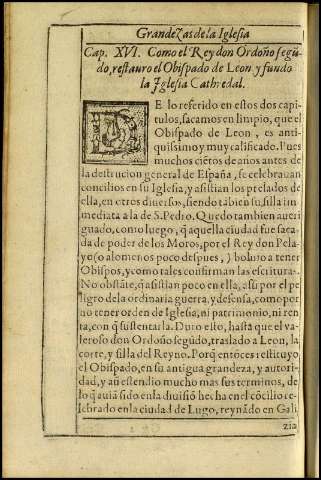 Grandezas de la Iglesia
Cap. XVI. Como el Rey don Ordoño segũ
do, restauro el Obispado de Leon y fundo
la Iglesia Cathredal.
DE lo referido en estos dos capi
tulos, sacamos en limpio, que el
Obispado de Leon, es anti
quissimo y muy calificado. Pues
muchos ciẽtos de años antes de
la destrucion general de España, se celebrauan
concilios en su Iglesia, y asistian los prelados de
ella, en otros diuersos, siendo tãbien su silla im
mediata a la de S. Pedro. Quedo tambien aueri
guado, como luego, q̃ aquella ciudad fue saca
da de poder de los Moros, por el Rey don Pela
yo (o alomenos poco despues,) boluio a tener
Obispos, y como tales confirman las escrituras.
No obstãte, q̃ asistian poco en ella, assi por el pe
ligro de la ordinaria guerra, y defensa, como por
no tener orden de Iglesia, ni patrimonio, ni ren
ta, con q̃ sustentarla. Duro esto, hasta que el va-
leroso don Ordoño segũdo, traslado a Leon, la
corte, y silla del Reyno. Porq̃ entõces restituyo
el Obispado, en su antigua grandeza, y autori-
dad, y añ estendio mucho mas sus terminos, de
lo q̃ auiã sido en la diuisiõ hecha en el cõcilio ce-
lebrado en la ciudad de Lugo, reynãdo en Gali
zia